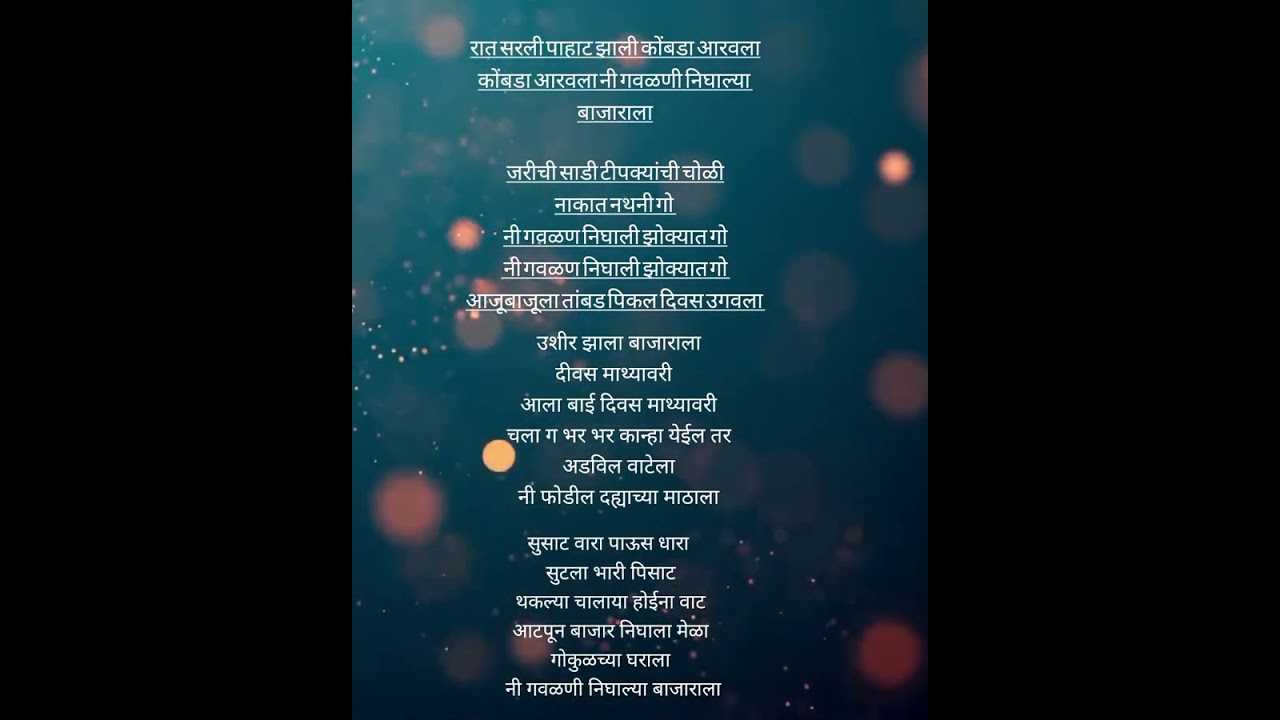 रात सरली पाहाट झाली कोंबडा आरवला
कोंबडा आरवला नी गवळणी निघाल्या
बाजाराला
जरीची साडी टीपक्यांची चोळी
नाकात नथनी गो
नी गवळण निघाली झोक्यात गो
नी गवळण निघाली झोक्यात गो
आजूबाजूला तांबड पिकल दिवस उगवला
उशीर झाला बाजाराला
दीवस माथ्यावरी
आला बाई दिवस माथ्यावरी
चला ग भर भर कान्हा येईल तर
अडविल वाटेला
नी फोडील दह्याच्या माठाला
सुसाट वारा पाऊस धारा
सुटला भारी पिसाट
थकल्या चालाया होईना वाट
आटपून बाजार निघाला मेळा
गोकुळच्या घराला
नी गवळणी निघाल्या बाजाराला